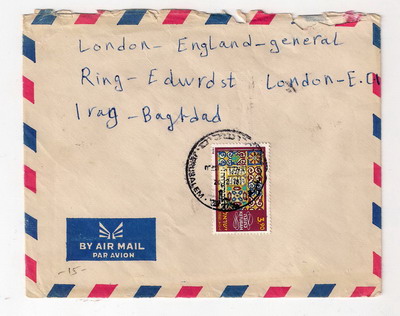 London- England-general
Ring- Edwrdst London-E.C1
Iraq-Bagtdad
JERUSALEM
3.90
BY AIR MAIL
PAR AVION
-15-